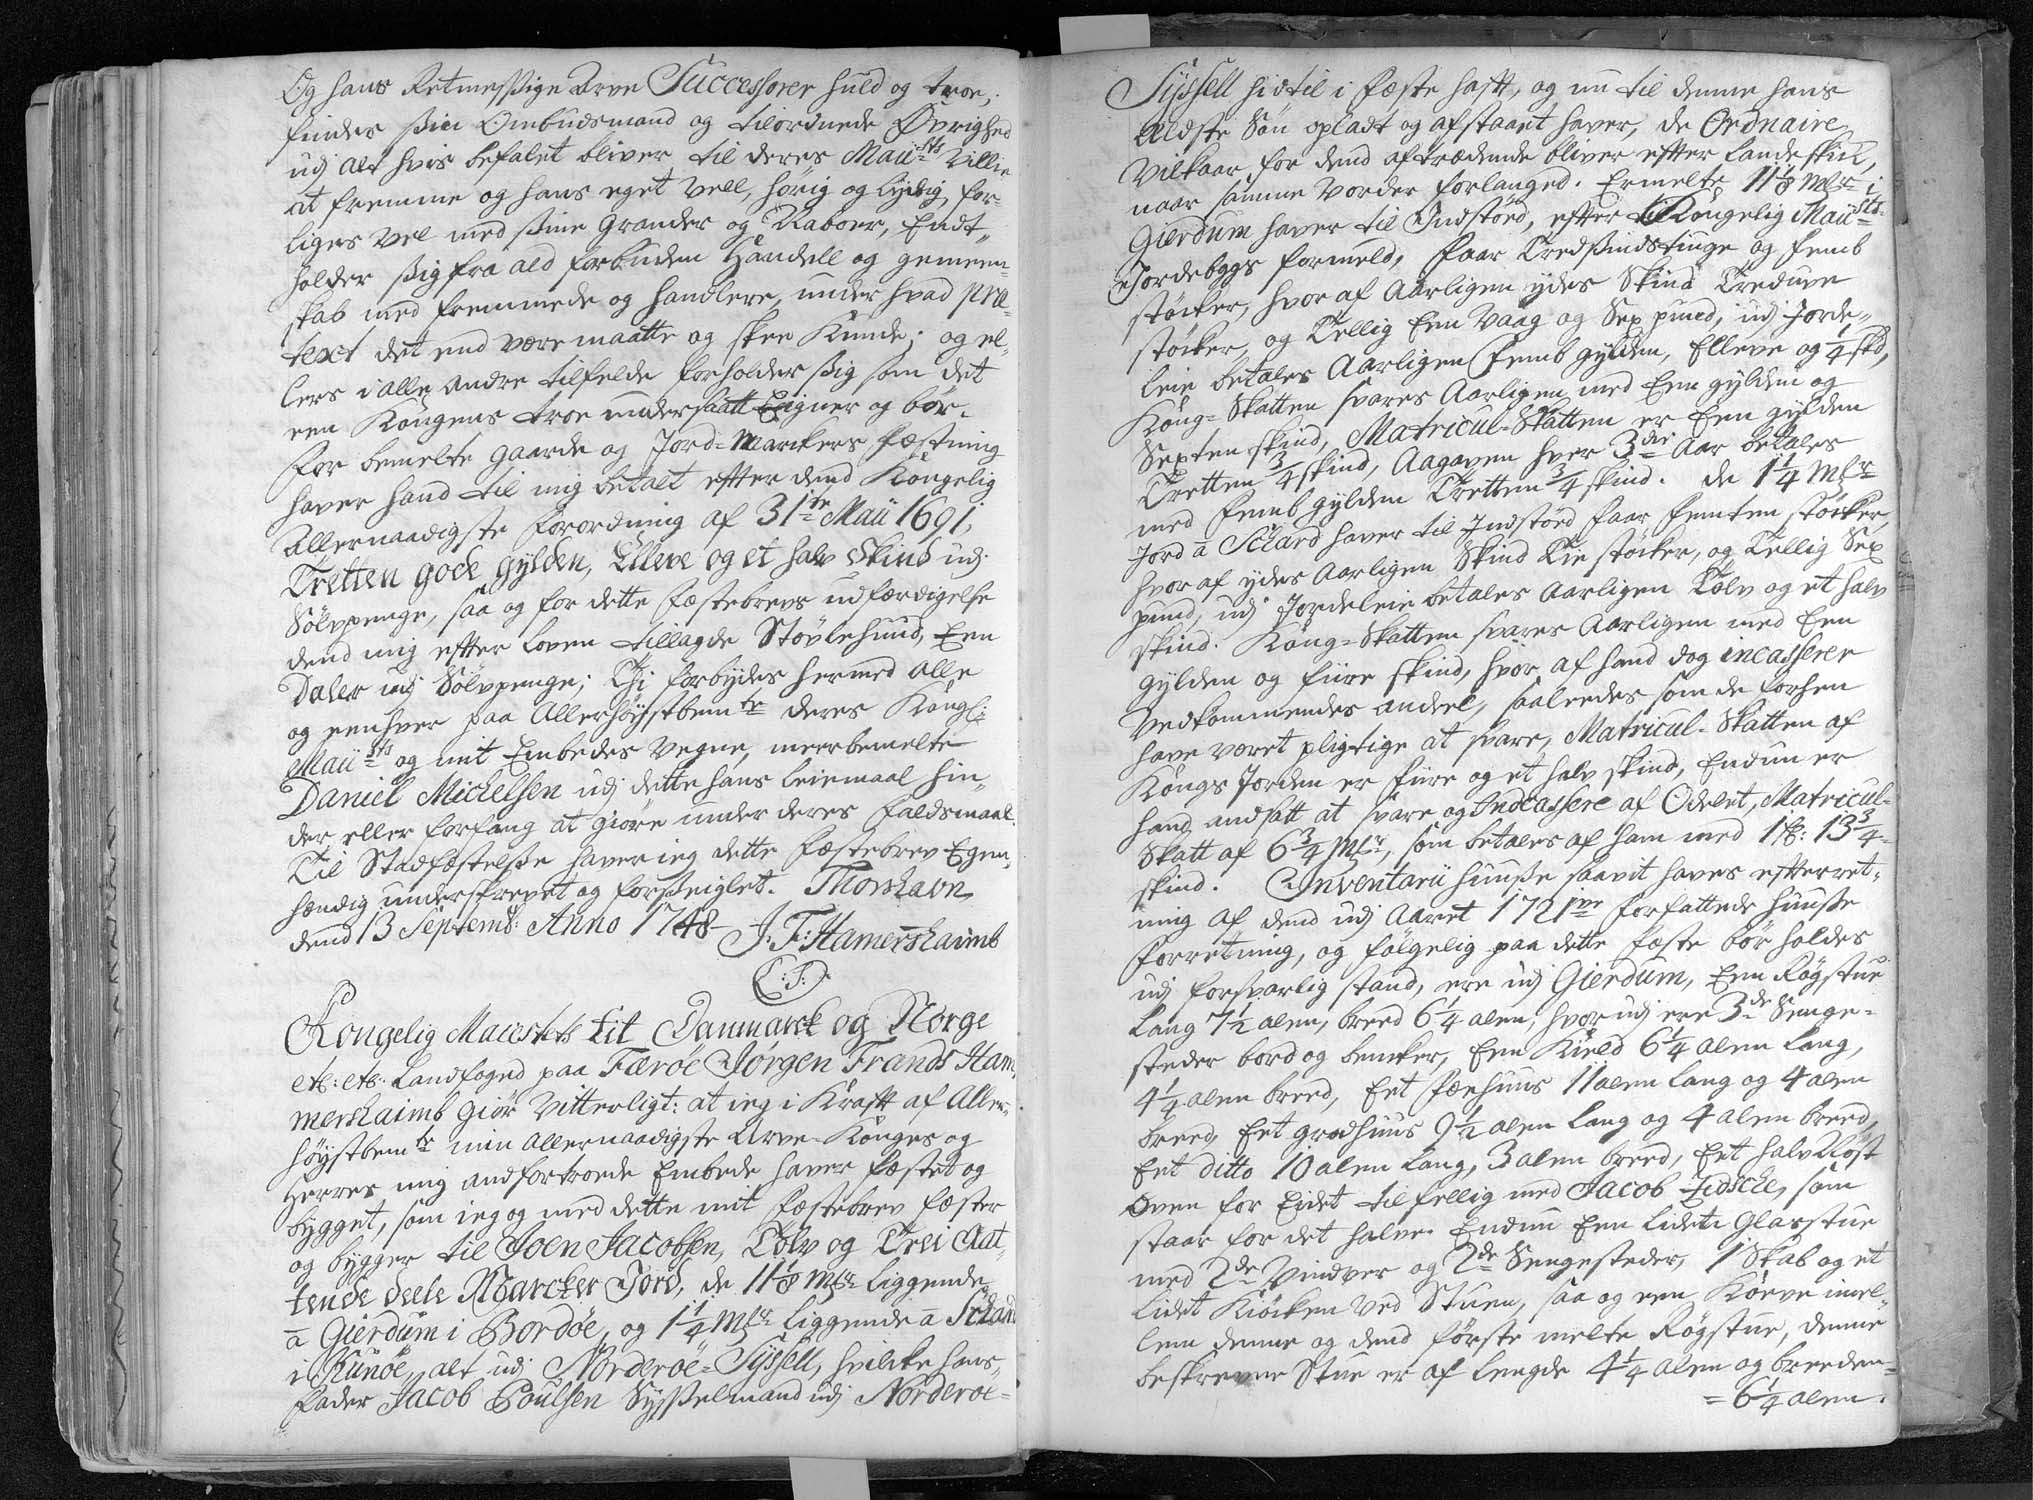 Og hans Retmessige Arve Successorer huld og troe,
findes sin Ombudsmand og tilordnede Øvrighed
udj alt hvis befalet bliver til deres Maii:sts Villie
at fremme og hans eget Vell, hörig og lydig, for-
liges Vel med sine Grander og Naboer, Endt„
holder sig fra ald forbuden Handell og gemeen-
skab med fremmede og handlere, under hvad præ-
text det end være maatte og skee kunde; og el-
lers i alle andre tilfelde forholder sig som det
een Kongens troe undersaatt Eigner og bör.
For bemelte gaarde og Jord-Marckers fæstning
haver hand til mig betalt efter dend Kongelig
Allernaadigste Forordning af 31te Maii 1691,
Tretten gode gylden, Elleve og et halv Skind udj
Sölvpenge, saa og for dette fæstebrevs udfærdigelse
dend mig efter loven tillagde Stövlehuud, Een
Daler udj Sölvpenge; Thi forbydes hermed alle
og eenhver paa Allerhöystbemte deres Kongl:
Maii:sts og mit Embedes Vegne, meerbemelte
Daniel Michelsen udj dette hans leiemaal hin„
der eller forfang at giöre under deres faldsmaal.
Til Stadfæstelse haver ieg dette Fæstebrev Egen„
hændig underskrevet og forseiglet. Thorshavn
dend 13 Septemb: Anno 1748 J. F: Hamershaimb
(L:S:)
Kongelig Maiestets til Danmarck og Norge
etc: etc: Landfoged paa Færöe Jörgen Frands Ham„
mershaimb Giör Vitterligt: at ieg i Krafft af Aller„
höystbemte min allernaadigste Arve-Konges og
Herres mig andfortroede Embede haver fæstet og
bygget, som ieg og med dette mit Fæstebrev fæster
og bygger til Joen Jacobsen, Tolv og Trei Aat„
tende deele Marcker Jord, de 11⅛ Mkr liggende
a Gierdum i Bordöe, og 1¼ Mkr liggende a Schard
i Kunöe, alt udj Norderöe-Sÿssell, hvilcke hans
Fader Jacob Poulsen Sysselmand udj Norderöe-
Sÿssell hidtil i fæste hafft, og nu til denne hans
ældste Sön opladt og afstaaet haver, de Ordnaire
Vilkaar for dend aftrædende bliver efter landeskik,
naar samme Vorder forlanged. Ermelte 11⅛ Mkr i
Gierdum haver til Indstöd, efter Kongelig Maii:sts
Jordebogs formeld, faar Tredsindstiuge og femb
stöcker, hvor af Aarligen ydes Skind Tredeve
stöcker, og Tellig Een Vaag og Sex pund, udj Jorde„
leie betales Aarligen femb gylden, Elleve og ¼ skd,
Kong-Skatten svares Aarligen med Een gylden og
Sexten skind, Matricul-Skatten er Een gylden
Tretten ¾ skind, Aagaven hver 3die Aar betales
med femb gylden Tretten ¾ skind. de 1¼ Mkr
Jord a Schard haver til Indstöd faar femten stöcker,
hvor af ydes Aarligen Skind Tie stöcker, og Tellig Sex
pund, udj Jordeleie betales Aarligen Tolv og et halv
skind. Kong-Skatten svares Aarligen med Een
gylden og fiire skind, hvor af hand dog incasserer
Vedkommendes andeel, saaleedes som de forhen
have været pligtige at svare, Matricul-Skatten af
Kongs Jorden er fiire og et halv skind, Endnu er
hand andsatt at svare og Indcassere af Odelet, Matricul-
Skatt af 6¾ Mkr, som betales af ham med 1 f: 13¾
skind. Inventarii Huuse saavit haves efterret-
ning af dend udj Aaret 1721ve forfattede Huuse
forretning, og fölgelig paa dette fæste bör holdes
udj forsvarlig stand, ere udj Gierdum, Een Rögstue
lang 7½ alen, breed 6¼ alen, hvor udj ere 3de Senge-
steder bord og bencker, Een Kield 6¼ alen lang,
4¼ alen breed, Eet fæehuus 11 alen lang og 4 alen
breed, Eet grodhuus 9½ alen lang og 4 alen breed,
Eet ditto 10 alen lang, 3 alen breed, Eet halv Nöst
oven for Eidet tilfellig med Jacob Jidsche, som
staar for det halve. Endnu Een lidet Glasstue
med 2de Vinduer og 2de Sengesteder, 1 Skab og et
lidet Kiöcken ved Stuen, saa og een Köeve imel„
lem denne og dend förste melte Rögstue, denne
beskrevne Stue er af lengde 4¼ alen og breeden-
= 6¼ alen.